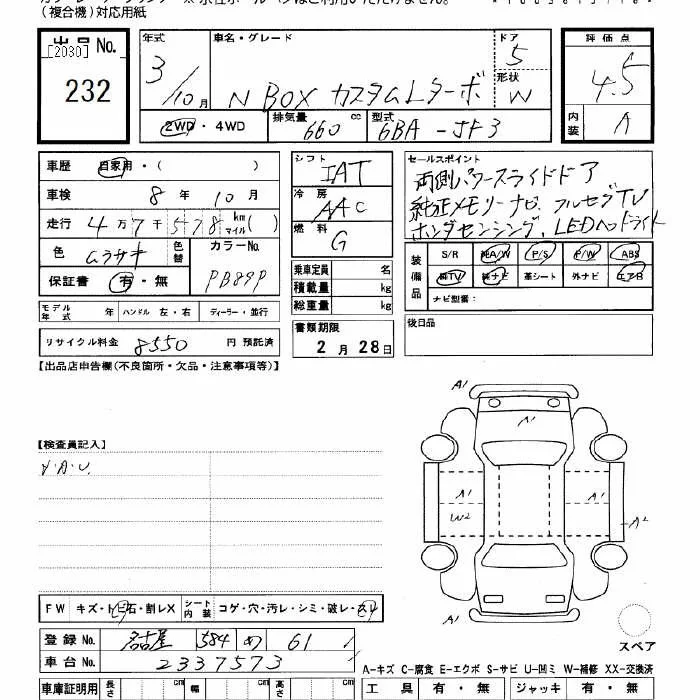 (複合機)対応用紙
出品 No.
[2030]
232
年式 3/10月
車名・グレード N BOX カスタムLターボ
ドア 5
形状 W
評価点 4.5
内装 A
2WD・4WD
排気量 660 cc
型式 6BA-JF3
車歴 自家用・( )
車検 8年 10月
走行 4万7千578 km マイル( )
色 ムラサキ 色替
カラーNo. PB89P
保証書 有・無
シフト IAT
冷房 AAC
燃料 G
乗車定員 名
積載量 kg
総重量 kg
セールスポイント
両側パワースライドドア
純正メモリーナビ、フルセグTV
ホンダセンシング、LEDヘッドライト
装備品 S/R 純A/W P/S P/W ABS
純TV 純ナビ 革シート 外ナビ エアB
ナビ型番:
モデル年式 年 ハンドル 左・右 ディーラー・並行
書類期限
2月28日
後日品
リサイクル料金 8550 円 預託済
【出品店申告欄(不良箇所・欠品・注意事項等)】
【検査員記入】
A1
A1
A1
A1
W2
A2
A1
FW キズ・トビ石・割レX シート内装 コゲ・穴・汚レ・シミ・破レ・スレ
登録 No. 名古屋 584 め 61
車台 No. 2337573
スペア
A-キズ C-腐食 E-エクボ S-サビ U-凹ミ W-補修 XX-交換済
車庫証明用 長さ cm 幅 cm 高さ cm
工具 有・無 ジャッキ 有・無